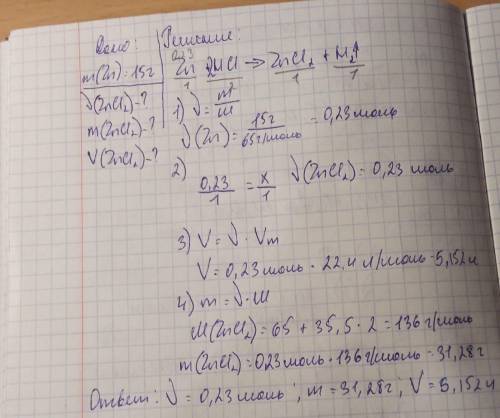 Дано:
m(Zn)=15г
ν(ZnCl₂)-?
m(ZnCl₂)-?
V(ZnCl₂)-?
Решение:
0,23
Zn 2HCl → ZnCl₂ + H₂↑
1 1 1
1) ν = m/M
ν(Zn) = 15г/65г/моль = 0,23моль
2)
0,23/1 = x/1 ν(ZnCl₂) = 0,23 моль
3) V = ν · Vm
V = 0,23моль · 22,4 л/моль = 5,152л
4) m = ν · M
M(ZnCl₂) = 65 + 35,5 · 2 = 136 г/моль
m(ZnCl₂) = 0,23моль · 136 г/моль = 31,28г
Ответ: ν = 0,23моль; m = 31,28г; V = 5,152л